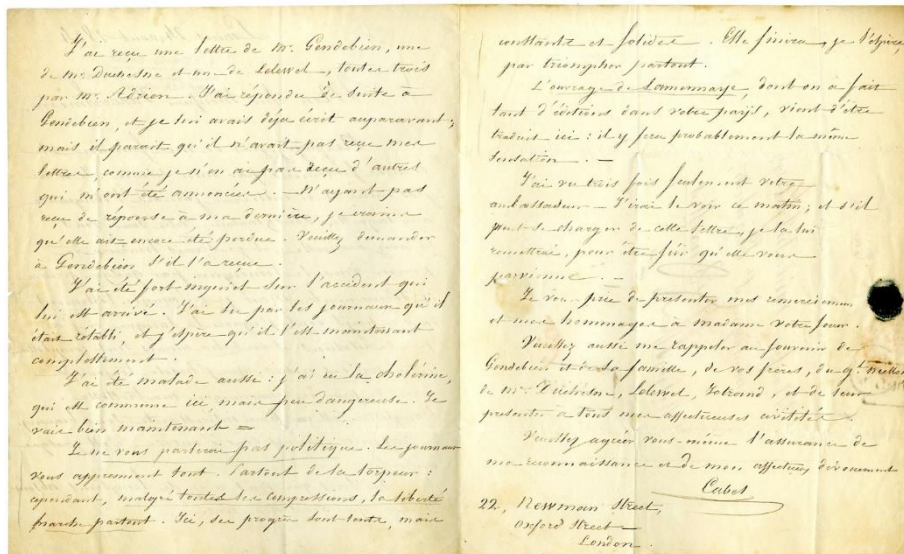 J'ai reçu une lettre de Mr. Gendebien, une
de Mr. Duchesne et une de Lelewel, toutes trois
par Mr. Adrien. J'ai répondu de suite à
Gendebien, et je lui avais déja écrit auparavant;
mais il parait qu'il n'avait pas reçu mes
lettres, comme je n'en ai pas reçu d'autres
qui m'ont été annoncées. — N'ayant pas
reçu de réponse à ma dernière, je crains
qu'elle ait encore été perdue. Veuillez demander
à Gendebien s'il l'a reçue.
J'ai été fort inquiet sur l'accident qui
lui est arrivé. J'ai lu par les journaux qu'il
était rétabli, et j'espère qu'il l'est maintenant
complettement.
J'ai été malade aussi : j'ai eu la cholérine,
qui est commune ici mais peu dangereuse. Je
vais bien maintenant =
Je ne vous parlerai pas politique. Les journaux
vous apprennent tout. Partout de la torpeur :
cependant, malgré toutes les compressions, la liberté
marche partout. Ici, ses progrès sont lents, mais
constants et solides. Elle finira, je l'espère,
par triompher partout.
L'ouvrage de Lamennaye, dont on a fait
tant d'éditions dans votre pays, vient d'être
traduit ici : il y fera probablement la même
sensation. —
J'ai vu trois fois seulement votre
ambassadeur — J'irai le voir ce matin; et s'il
peut se charger de cette lettre, je la lui
remettrai, pour être sûr qu'elle vous
parvienne. —
Je vous prie de présenter mes remerciemens
et mes hommages à madame votre sœur.
Veuillez aussi me rappeler au souvenir de
Gendebien et de sa famille, de vos frères, du gl.
de Mr. Duchesne, Lelewel, et de leur
presenter à tous mes affectueuses civilités.
Veuillez agréer vous-même l'assurance de
ma reconnaissance et de mon affectueux dévouement
Cabet
22, Newman Street,
Oxford Street
London.